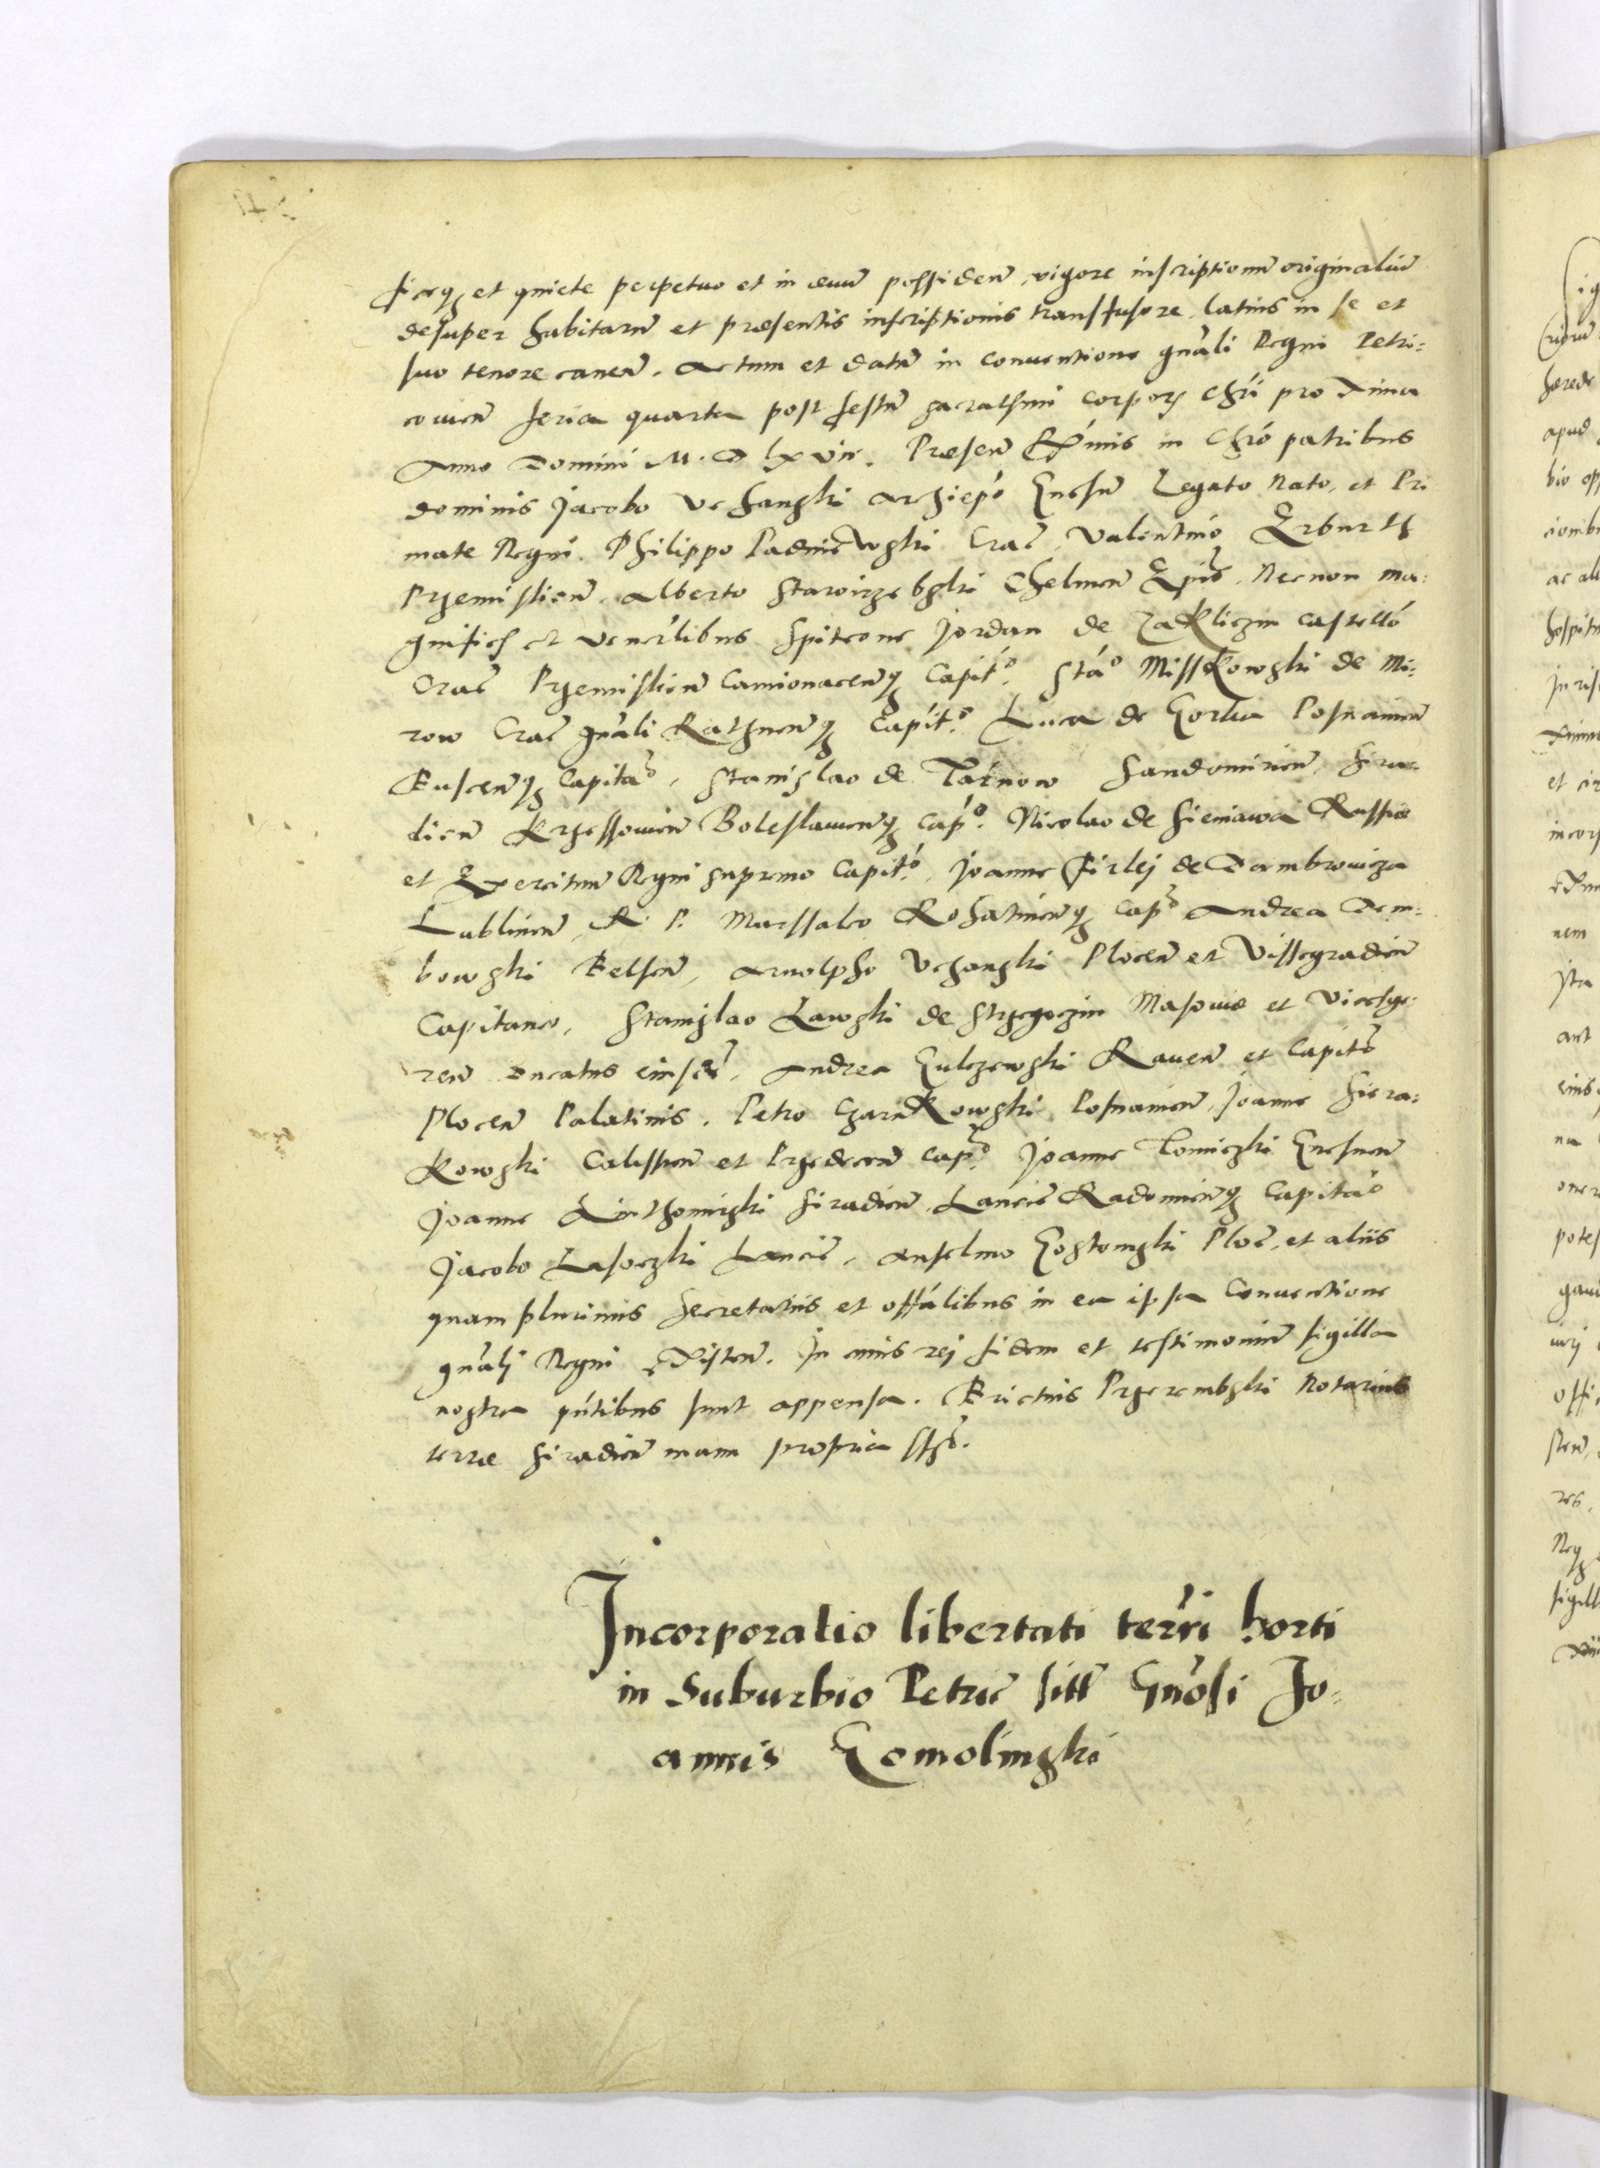 ficeq et quiete perpetuo et in aevum possideñ, vigore inscriptionum originaliũ
desuper habitarũ et præsentis inscriptionis transfusore, latius in se et
suo tenore caneñ. Actum et datũ in conventione gñali Regni Petri=
covieñ feria quarta post festũ sacratissimi corporis Chri pro xima
Anno Domini M.D lxvii. Præseñ Rx̃mis in Chró patribus
dominis Jacobo Uchanski Archiepó Gnesñ Legato Nato, et Pri
mate Regni. Philippo Padniewski Crac̃, Valentino Erburth
Przemisliеñ. Alberto Starozrzebski Chelmeñ Epis. Necnon ma=
gnificis et venerlibus Spitcone Jordan de Zakliczin Castelló
Crac̃ Przemislieñ Camionaceñq Capit.º Stáº Misskowski de Mi=
row Crac̃ gñali Rathneñq Capit.º Luca de Gorka Posnanieñ
Busceñq Capitaº, Stanislao de Tarnow Sandomirieñ, Sira=
dieñ Krzessovieñ Boleslavieñq capº. Nicolao de Sieniawa Russiæ
et Exercituũ Regni supremo Capit.º, Joanne Firlej de Dambrowicza
Lublineñ, R. P. Marssalco Rohatineñq capº Andrea Dem=
bowski Belseñ, Arnolpho Uchanski Ploceñ et Vissegradieñ
Capitaneo, Stanislao Lawski de Strzegoczin Masoviæ et Vicesge=
reñ Ducatus eiusdẽ, Andrea Gulczewski Raveñ et Capitº
Ploceñ Palatinis. Petro Czarnkowski Posnanieñ, Joanne Siera=
kowski Calissieñ et Przedeceñ capº. Joanne Tomiczki Gnesneñ
Joanne Luthomirski Siradieñ, Lancic̃ Radomieñq Capitaº
Jacobo Lasoczki Lancic̃, Anselmo Gostomski Ploc̃, et aliis
quam plurimis secretariis et offálibus in ea ipsa Conventione
gñalj Regni exñsteñ. In cuius rej fidem et testimoniũ sigilla
nostra pñtibus sunt appensa. Brictius Przerembski Notarius
terræ Siradieñ manu propria sszº.
Incorporatio libertati terŕri horti
in Suburbio Petric̃ sitĩ Gñosi Jo=
annis Gomolinski